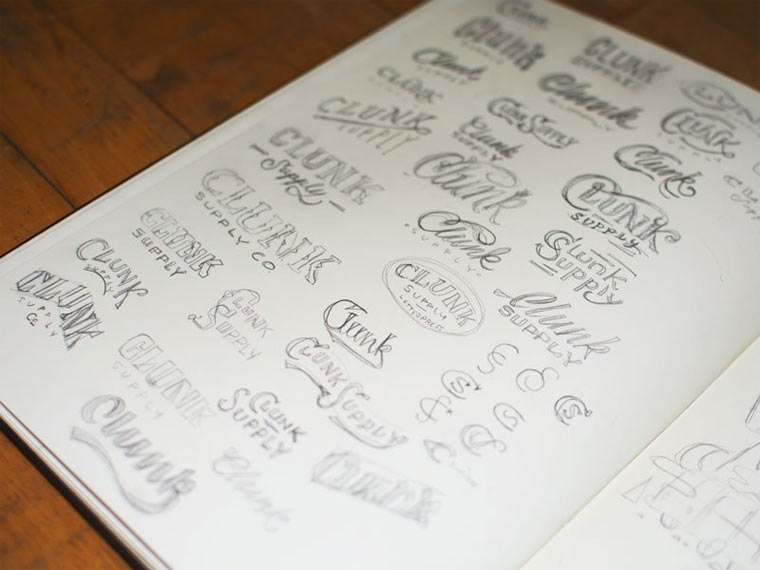 Clunk
SUPPLY
CLUNK
SUPPLY
Clunk
SUPPLY
Clunk
SUPPLY
CLUNK
SUPPLY
CLUNK
Clunk Supply
Clunk
SUPPLY
Clunk
CLUNK
SUPPLY
Clunk
CLUNK
SUPPLY
CLUNK
Supply
Clunk
SUPPLY
Clunk
Supply
CLUNK
SUPPLY CO
CLUNK
SUPPLY
CLUNK
SUPPLY
LETTERPRESS
Clunk
SUPPLY
CLUNK
SUPPLY
CLUNK
SUPPLY
CO
CLUNK
SUPPLY
Clunk
CLUNK SUPPLY
CLUNK
SUPPLY
CLUNK
SUPPLY
Clunk
Clunk
Clunk